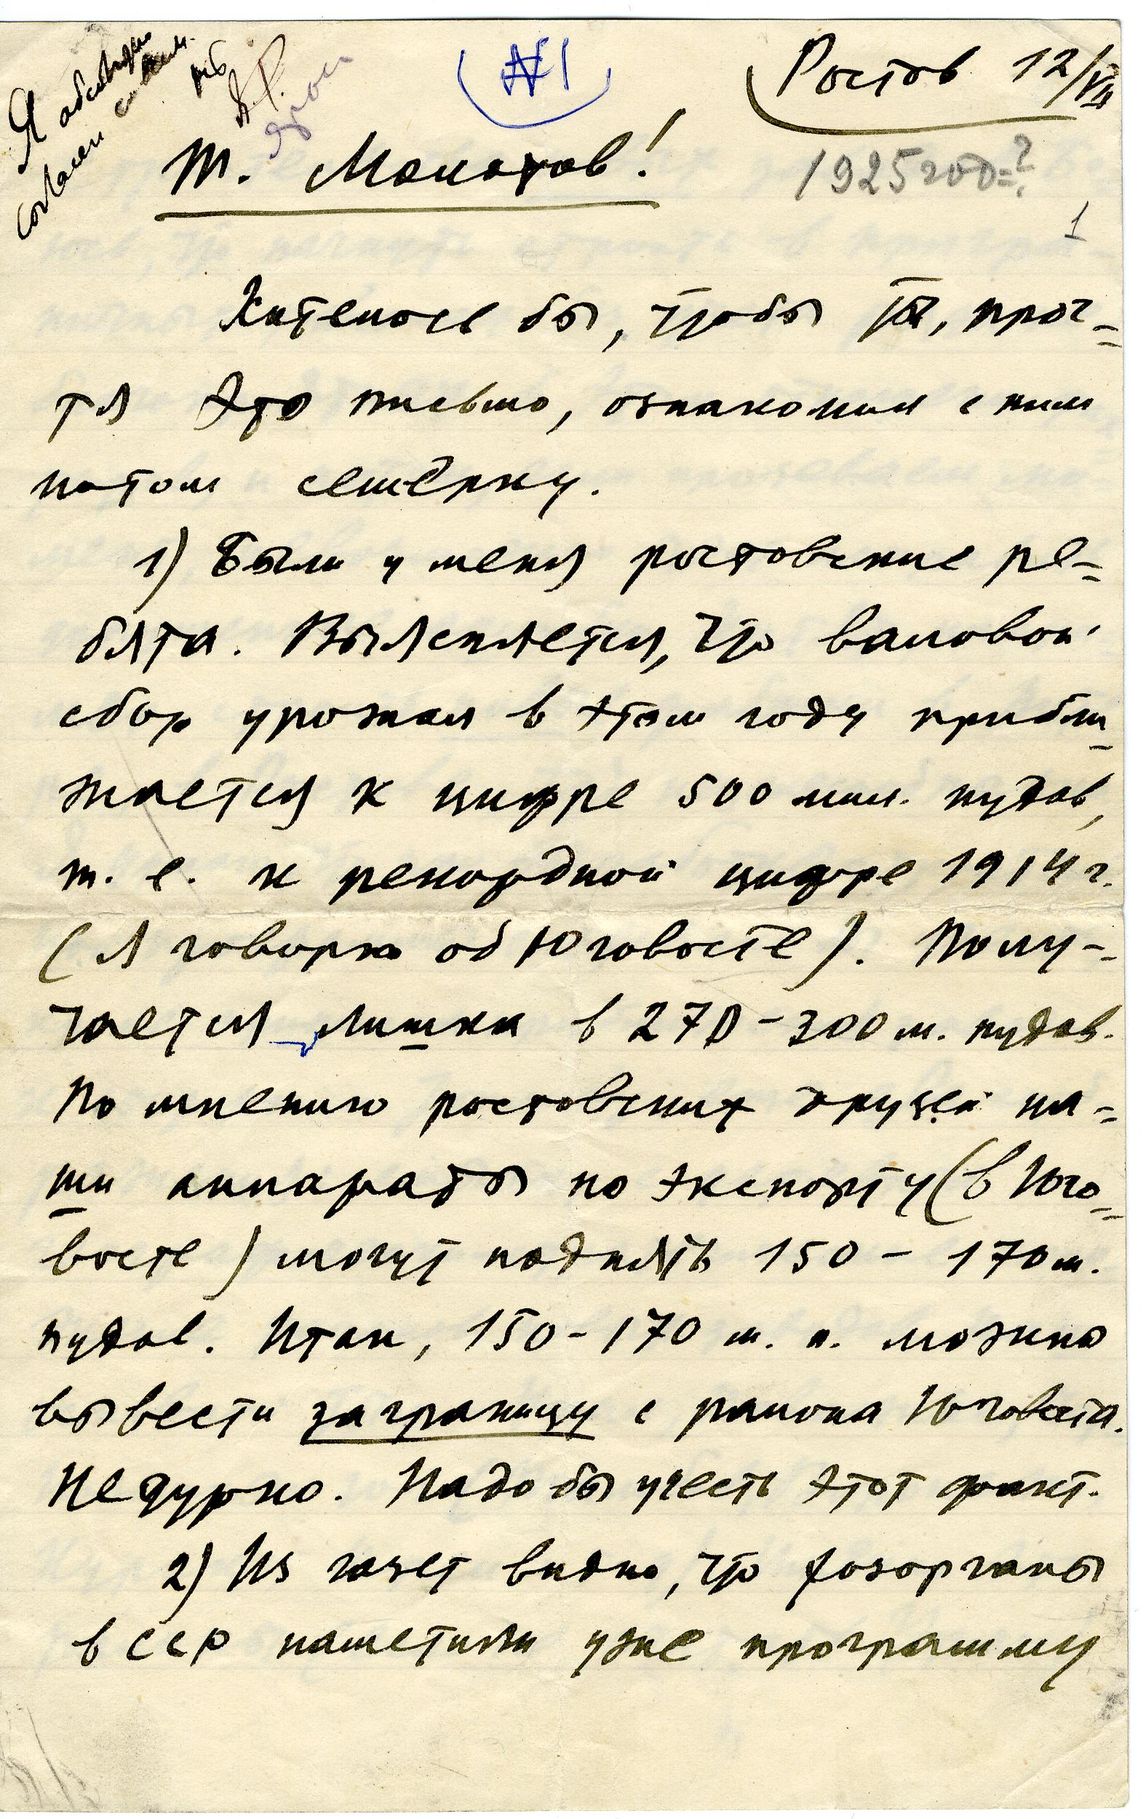 Я абсолютно
согласен с этим.
№1
Ростов 12/VII
1925 год=?
1
Т. Молотов!
Хотелось бы, чтобы ты, проч-
тя это письмо, ознакомил с ним
потом семёрку.
1) Были у меня ростовские ре-
бята. Выясняется, что валовой
сбор урожая в этом году прибли-
жается к цифре 500 мил. пудов,
т. е. к рекордной цифре 1914 г.
(я говорю об Юговосте). Полу-
чается лишки в 270-300 м. пудов.
По мнению ростовских друзей на-
ши аппараты по экспорту (в Юго-
восте) могут поднять 150 - 170 м.
пудов. Итак, 150-170 м. п. можно
вывести заграницу с района Юговоста.
Недурно. Надо бы учесть этот факт.
2) Из газет видно, что хозорганы
в ССР наметили уже программу